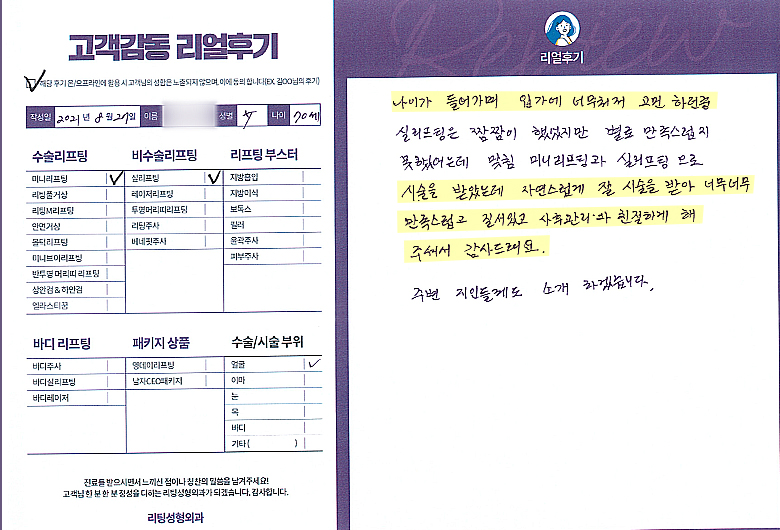 고객감동 리얼후기
해당 후기 온/오프라인에 활용 시 고객님의 성함은 노출되지 않으며, 이에 동의 합니다(EX. 김OO님의 후기)
작성일 2021년 8월 27일 이름 성별 여 나이 70세
수술리프팅 비수술리프팅 리프팅 부스터
미니리프팅 ✓ 실리프팅 ✓ 지방흡입
리팅풀거상 레이저리프팅 지방이식
리팅M리프팅 투명머리띠리프팅 보톡스
안면거상 리팅주사 필러
울터리프팅 베네핏주사 윤곽주사
미니브이리프팅 피부주사
반투명 머리띠 리프팅
상안검 & 하안검
엘라스티꿈
바디 리프팅 패키지 상품 수술/시술 부위
바디주사 영데이리프팅 얼굴 ✓
바디실리프팅 남자CEO패키지 이마
바디레이저 눈
목
바디
기타( )
진료를 받으시면서 느끼신 점이나 칭찬의 말씀을 남겨주세요!
고객님 한 분 한 분 정성을 다하는 리팅성형외과가 되겠습니다. 감사합니다.
리팅성형외과
리얼후기
나이가 들어가며 입가에 너무처져 고민 하던중
실리프팅은 꼼꼼이 했었지만 별로 만족스럽지
못했었는데 맞춤 미니리프팅과 실리프팅 으로
시술을 받았는데 자연스럽게 잘 시술을 받아 너무너무
만족스럽고 질서있고 사후관리와 친절하게 해
주셔서 감사드려요.
주변 지인들께도 소개 하겠습니다.